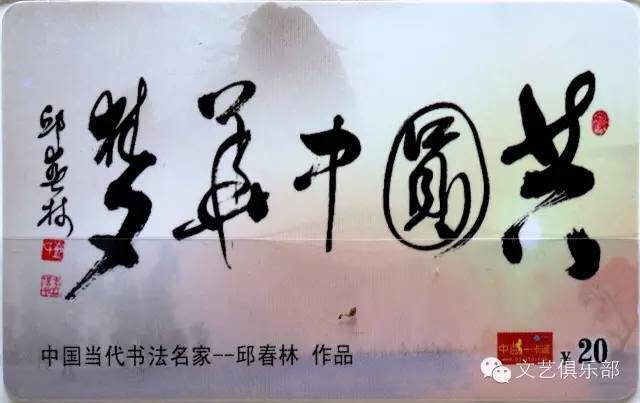 共圓中華夢
邱春林
中国当代书法名家--邱春林 作品
¥20
文艺俱乐部